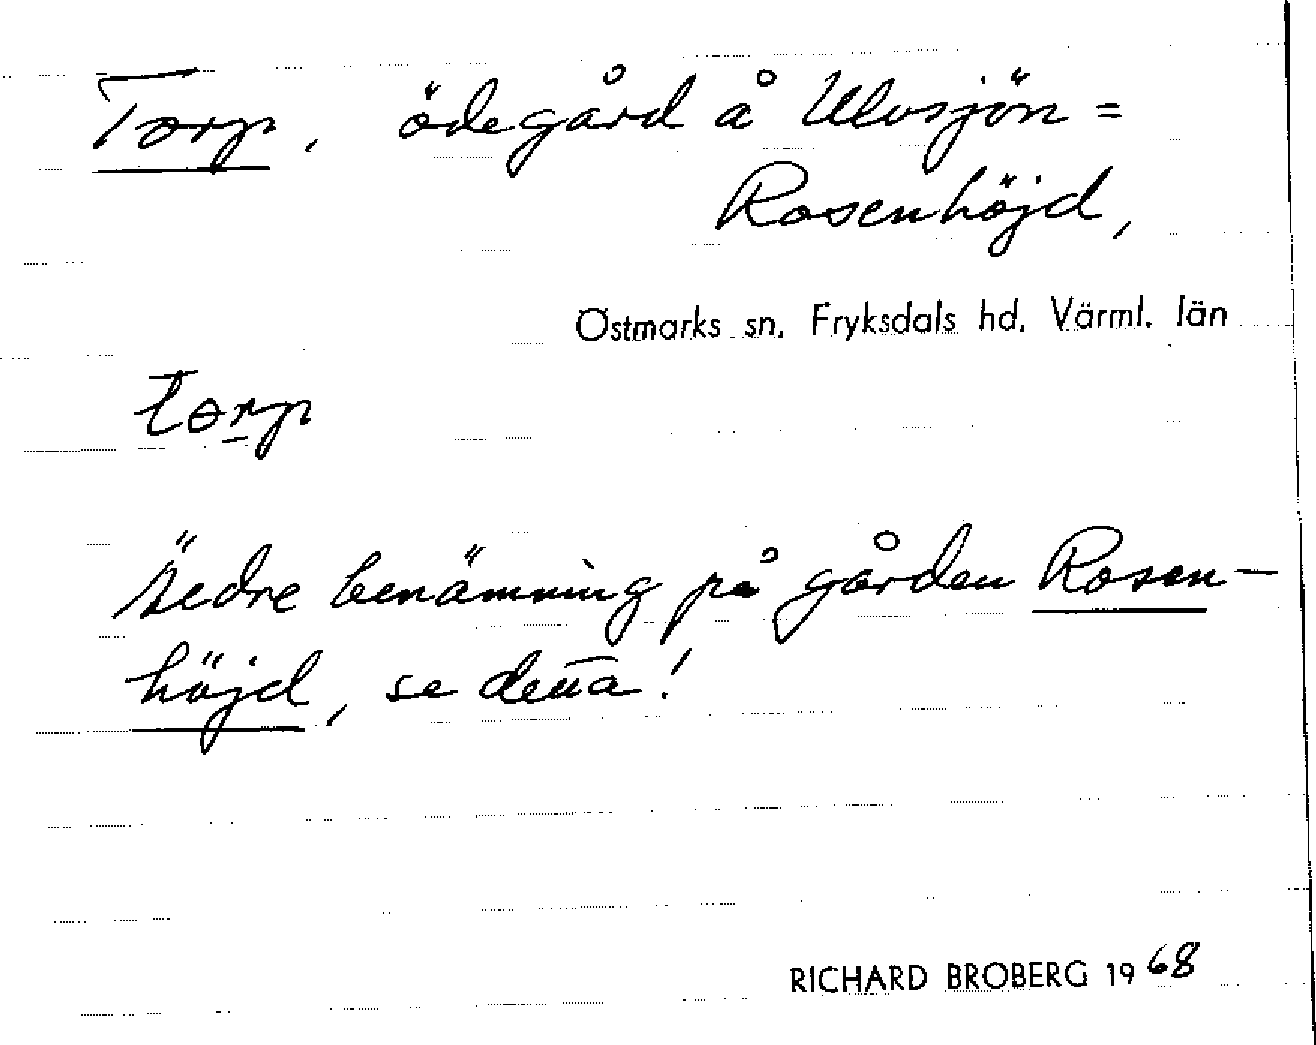 Torp, ödegård å Ulvsjön=
Rosenhöjd,
Östmarks sn. Fryksdals hd. Värml. län
tɵrp
Äldre benämning på gården Rosen-
höjd, se detta!
RICHARD BROBERG 1968